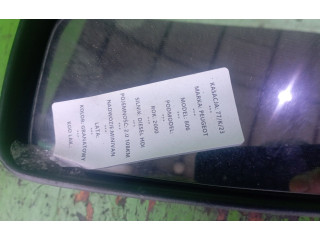 KASACJA: 77/6/23
***
MARKA: PEUGEOT
***
MODEL: 806
***
PODMODEL:
***
ROK: 2000
***
SILNIK: DIESEL HDI
***
POJEMNOŚĆ: 2.0 109KM
***
NADWOZIE: MINIVAN
***
LATA:
***
KOLOR: GRANATOWY
***
KOD LAK.: